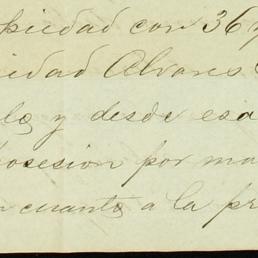 piedad con 36
idad Alvares
lo y desde esa
posesion por ma
cuanto a la pr